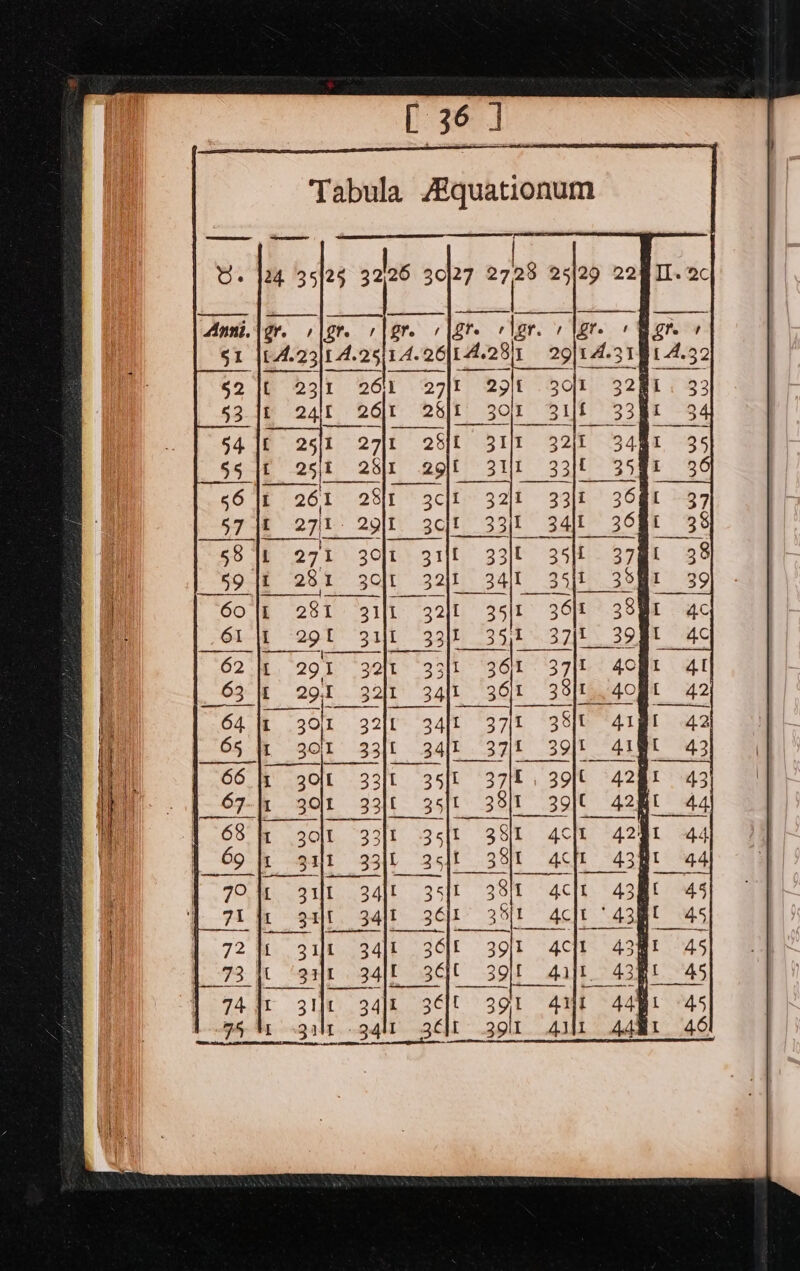 [ 36 ]
Tabula Æquationum
♉. 24 35 25 32 26 30 27 27 28 25 29 22 II. 20
Anni. gr. ′ gr. ′ gr. ′ gr. ′ gr. ′ gr. ′ gr. ′
51 1A.23 1A.25 1A.26 1A.28 1 29 1A.31 1A.32
52 1 23 1 26 1 27 1 29 1 30 1 32 1 33
53 1 24 1 26 1 28 1 30 1 31 1 33 1 34
54 1 25 1 27 1 28 1 31 1 32 1 34 1 35
55 1 25 1 28 1 29 1 31 1 33 1 35 1 36
56 1 26 1 28 1 30 1 32 1 33 1 36 1 37
57 1 27 1 29 1 30 1 33 1 34 1 36 1 38
58 1 27 1 30 1 31 1 33 1 35 1 37 1 38
59 1 28 1 30 1 32 1 34 1 35 1 38 1 39
60 1 28 1 31 1 32 1 35 1 36 1 38 1 40
61 1 29 1 31 1 33 1 35 1 37 1 39 1 40
62 1 29 1 32 1 33 1 36 1 37 1 40 1 41
63 1 29 1 32 1 34 1 36 1 38 1 40 1 42
64 1 30 1 32 1 34 1 37 1 38 1 41 1 42
65 1 30 1 33 1 34 1 37 1 39 1 41 1 43
66 1 30 1 33 1 35 1 37 1 39 1 42 1 43
67 1 30 1 33 1 35 1 38 1 39 1 42 1 44
68 1 30 1 33 1 35 1 38 1 40 1 42 1 44
69 1 31 1 33 1 35 1 38 1 40 1 43 1 44
70 1 31 1 34 1 35 1 38 1 40 1 43 1 45
71 1 31 1 34 1 36 1 38 1 40 1 43 1 45
72 1 31 1 34 1 36 1 39 1 40 1 43 1 45
73 1 31 1 34 1 36 1 39 1 41 1 43 1 45
74 1 31 1 34 1 36 1 39 1 41 1 44 1 45
75 1 31 1 34 1 36 1 39 1 41 1 44 1 46